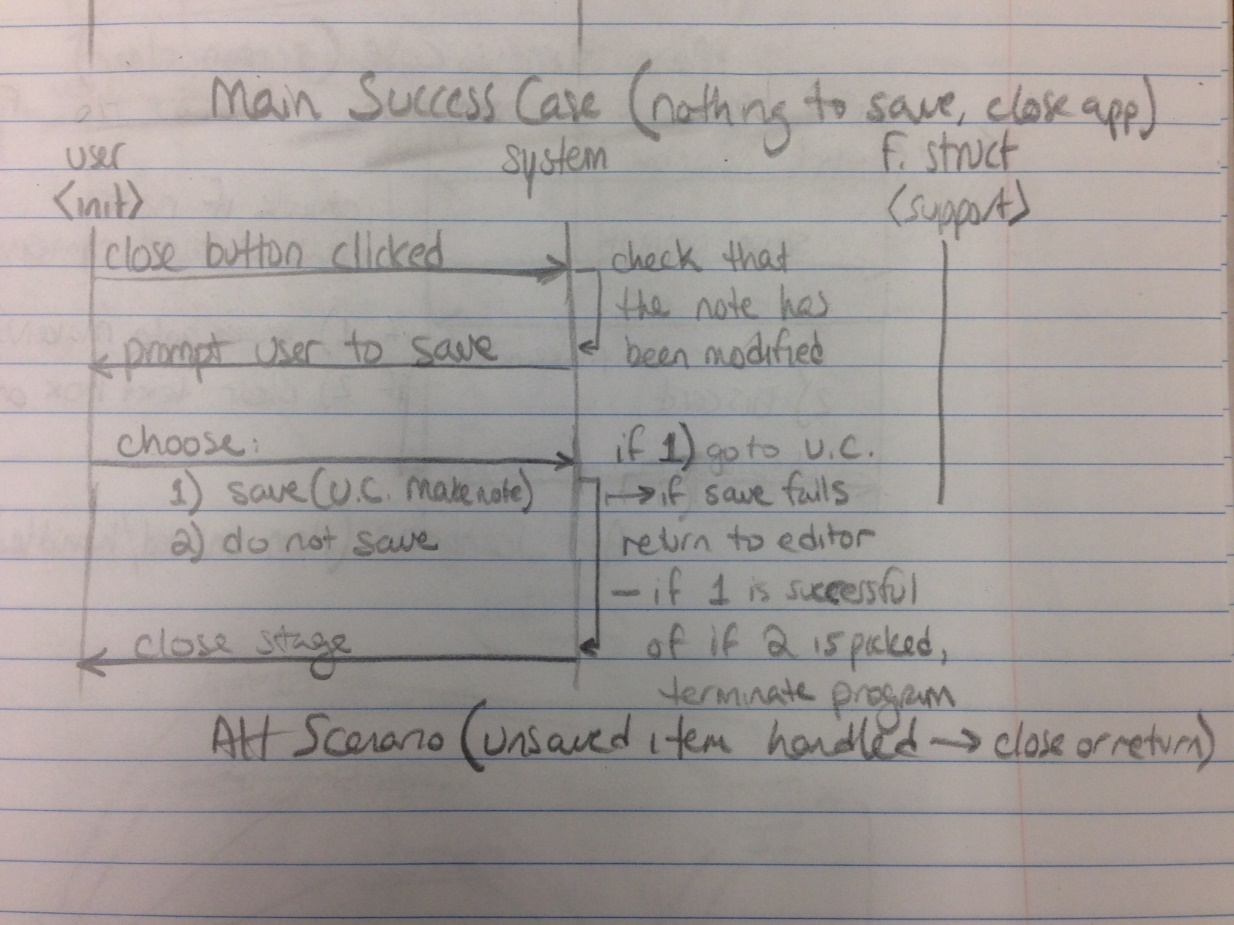 Main Success Case (nothng to save, close app)
user system F. struct
<init> <support>
close button clicked
check that
the note has
been modified
prompt user to save
choose:
1) save (U.C. Make note)
2) do not save
if 1) go to U.C.
→ if save fails
return to editor
— if 1 is successful
of if 2 is picked,
terminate program
close stage
Alt Scenario (unsaved item handled → close or return)